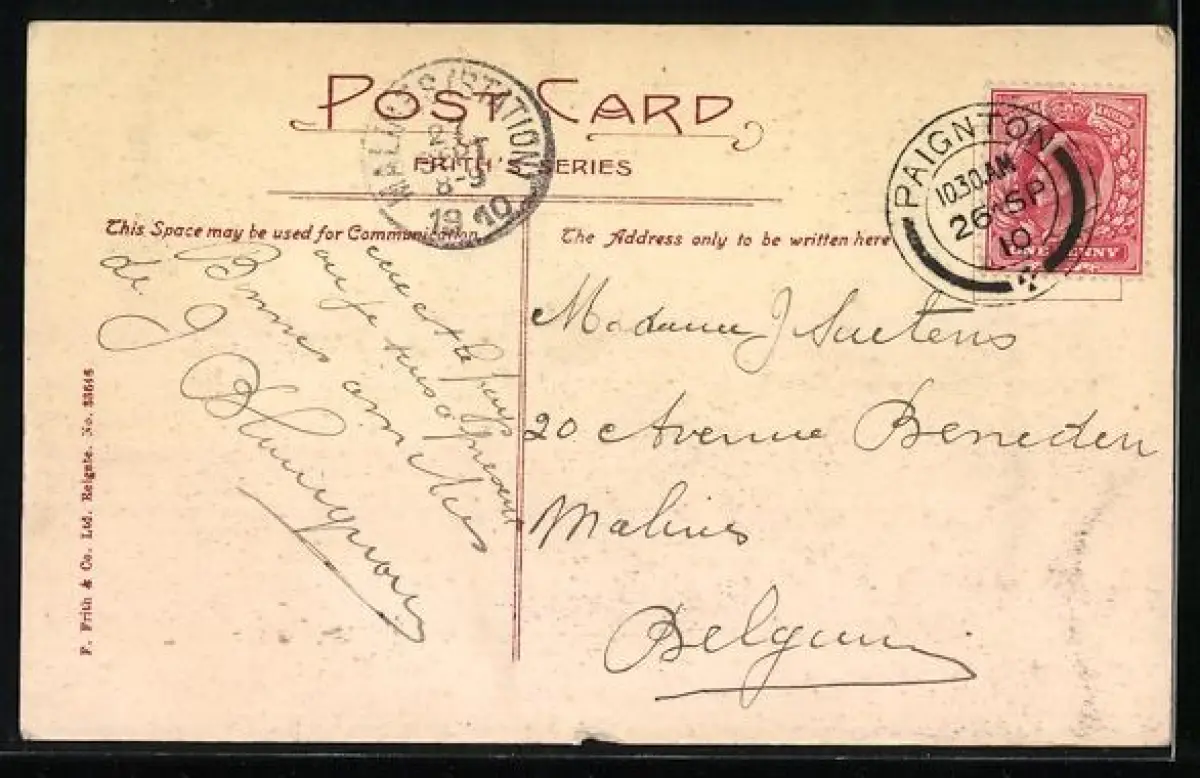 POST CARD
FRITH'S SERIES
MALINES (STATION)
SEPT
8-9
1910
PAIGNTON
10.30.AM
26 SP
10
ONE PENNY
This Space may be used for Communication
The Address only to be written here
Madame J Suetens
20 Avenue Beneden
Malines
Belgium
ou je suis à présent
Bonnes amitiés
de J
F. Frith & Co. Ltd. Reigate. No.